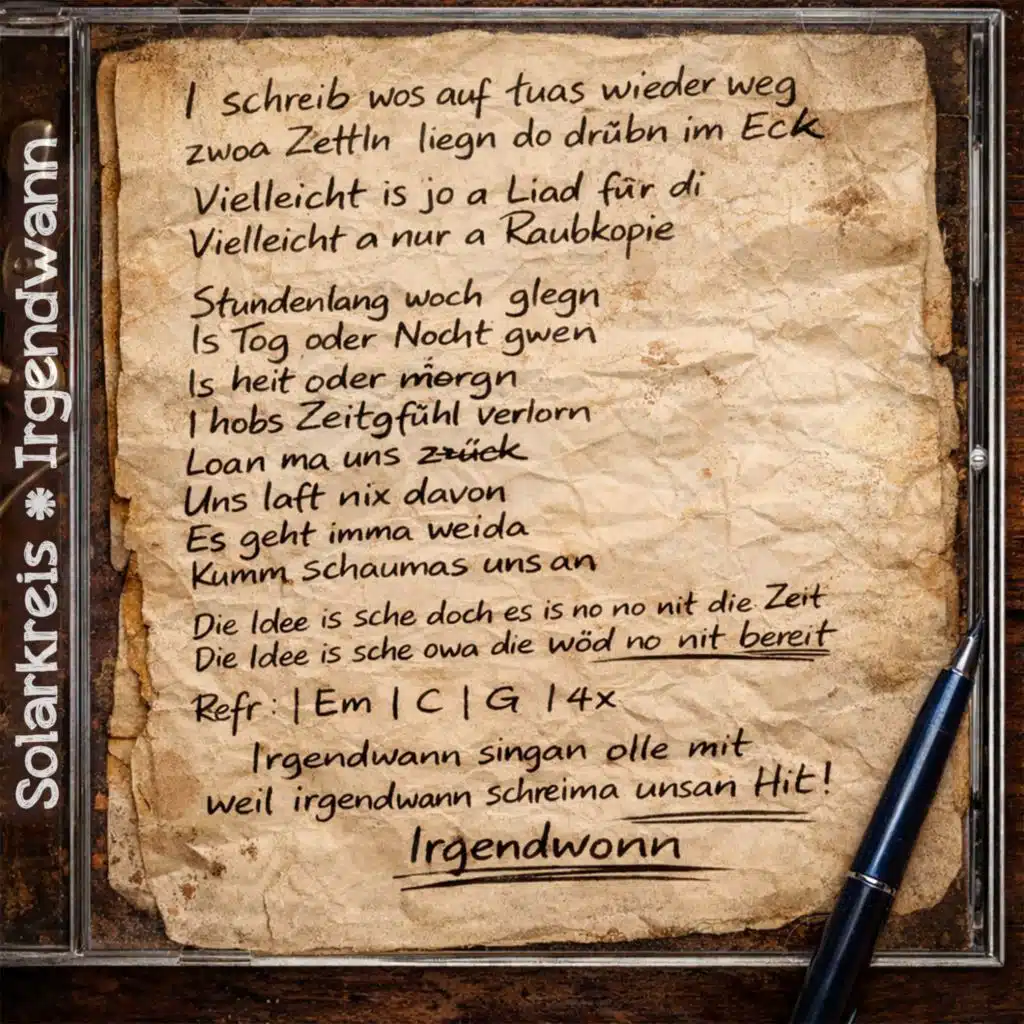 Solarkreis * Irgendwann
I schreib wos auf tuas wieder weg
zwoa Zettln liegn do drübn im Eck
Vielleicht is jo a Liad für di
Vielleicht a nur a Raubkopie
Stundenlang woch glegn
Is Tog oder Nocht gwen
Is heit oder morgn
I hobs Zeitgfühl verlorn
Loan ma uns zrück
Uns laft nix davon
Es geht imma weida
Kumm schaumas uns an
Die Idee is sche doch es is no no nit die Zeit
Die Idee is sche owa die wöd no nit bereit
Refr: | Em | C | G | 4x
Irgendwann singan olle mit
weil irgendwann schreima unsan Hit!
Irgendwonn